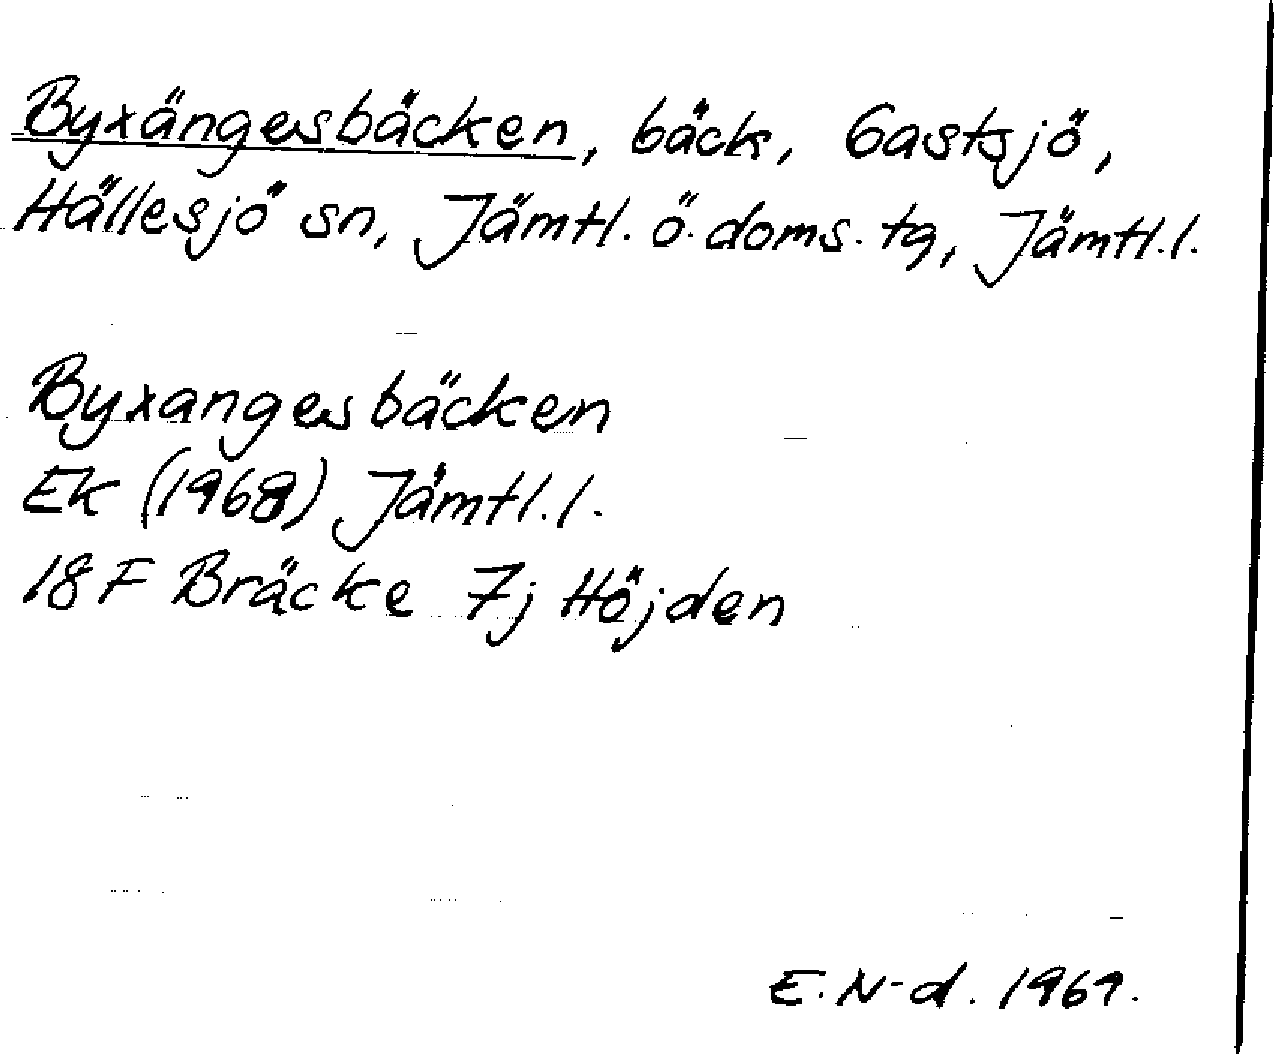 Byxängesbäcken, bäck, Gastsjö,
Hällesjö sn, Jämtl. ö. doms. tg, Jämtl.l.
Byxangesbäcken
Ek (1968) Jämtl.l.
18F Bräcke 7j Höjden
E. N-d. 1969.